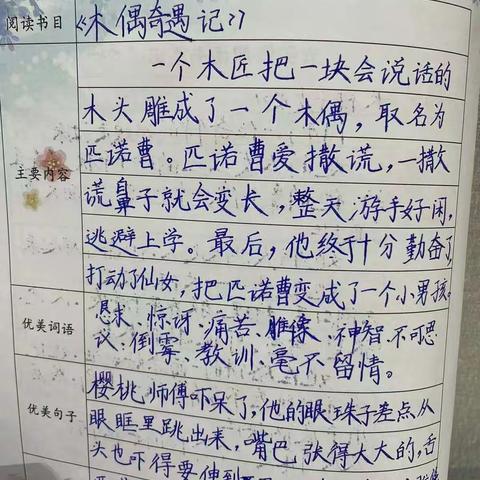 阅读书目 《木偶奇遇记》
一个木匠把一块会说话的
木头雕成了一个木偶，取名为
匹诺曹。匹诺曹爱撒谎，一撒
主要内容
谎鼻子就会变长，整天游手好闲，
逃避上学。最后，他终于十分勤奋
打动了仙女，把匹诺曹变成了一个小男孩。
优美词语
恳求、惊讶、痛苦、雕像、神智、不可思
议、倒霉、教训、毫不留情。
优美句子
樱桃师傅吓呆了，他的眼珠子差点从
眼眶里跳出来，嘴巴张得大大的，舌
头也吓得要伸到